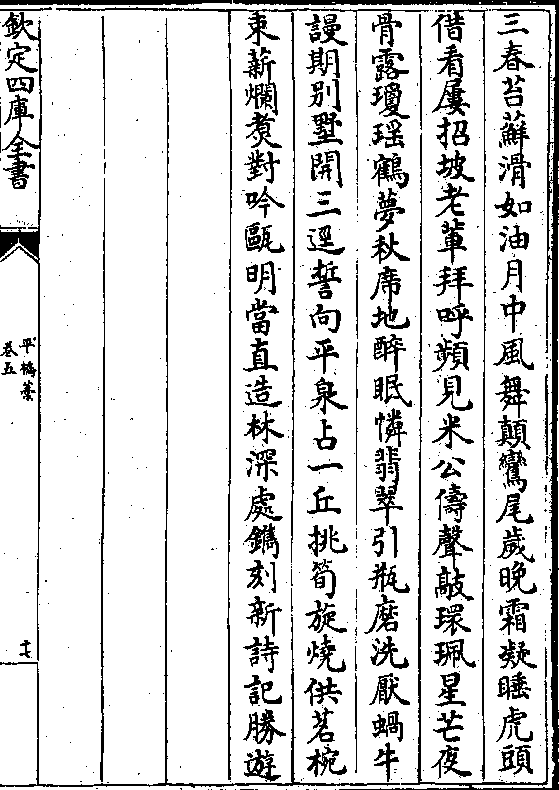 三春苔蘚滑如油月中風舞顛鸞尾歲晚霜凝睡虎頭
借看屢招坡老輩拜呼頻見米公儔聲敲環珮星芒夜
骨露瓊瑶鶴夢秋席地醉眠憐翡翠引瓶磨洗厭蝸牛
謾期别墅開三逕誓向平泉占一丘挑筍旋燒供茗椀
束薪爛煑對吟甌明當直造林深處鐫刻新詩記勝遊
欽定四庫全書
平橋藁
卷五
十七